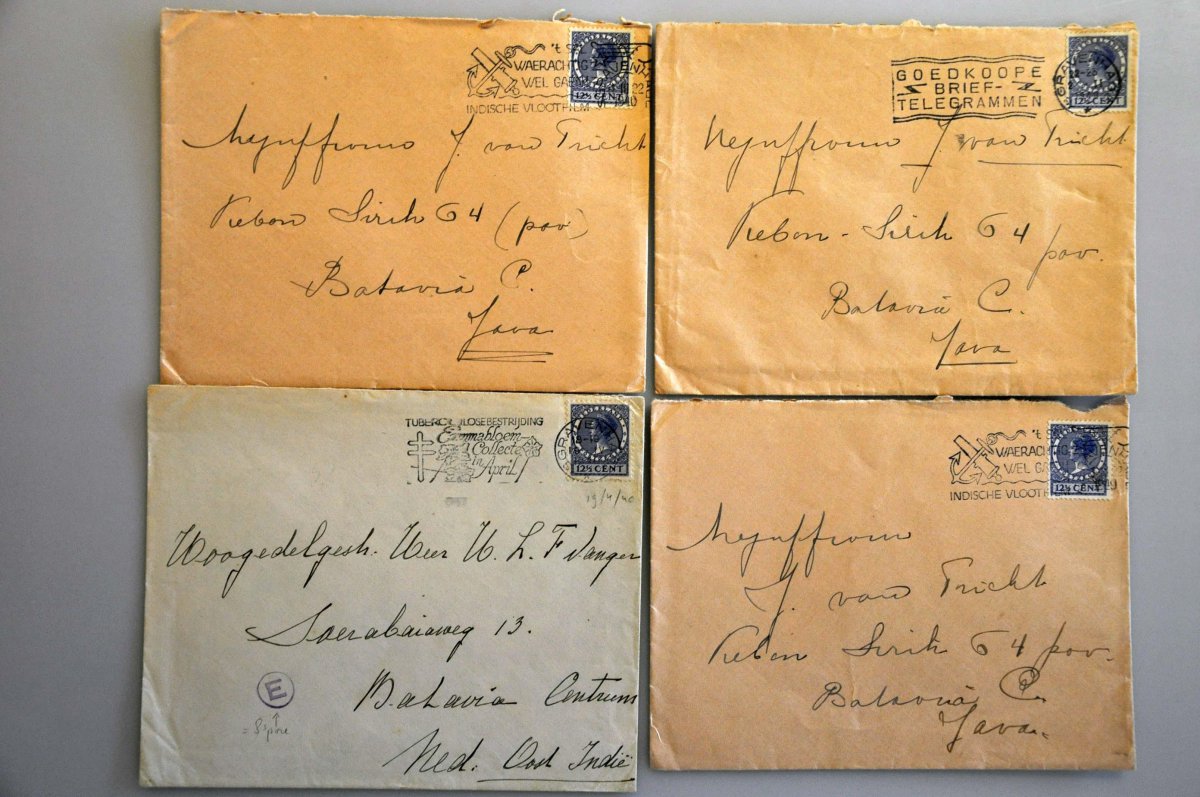 't S
WAERACHTIG
WEL GA
INDISCHE VLOOTFILM
12½ CENT
Mejuffrouw J. van Tricht
Kebon Sirih 64 (pav)
Batavia C.
Java
GOEDKOOPE
BRIEF-
TELEGRAMMEN
12½ CENT
Mejuffrouw J. van Tricht
Kebon-Sirih 64
pav.
Batavia C.
Java
TUBERCULOSEBESTRIJDING
Emmabloem
Collecte
in
April
12½ CENT
19/4/40
Hoogedelgestr. Heer H. L. F
Soerabaiaweg 13.
Batavia Centrum
Ned. Oost Indië
E
't S
WAERACHTIG
WEL GA
INDISCHE VLOOTF
12½ CENT
Mejuffrouw
J. van Tricht
Kebon Sirih 64 pav.
Batavia C.
Java.